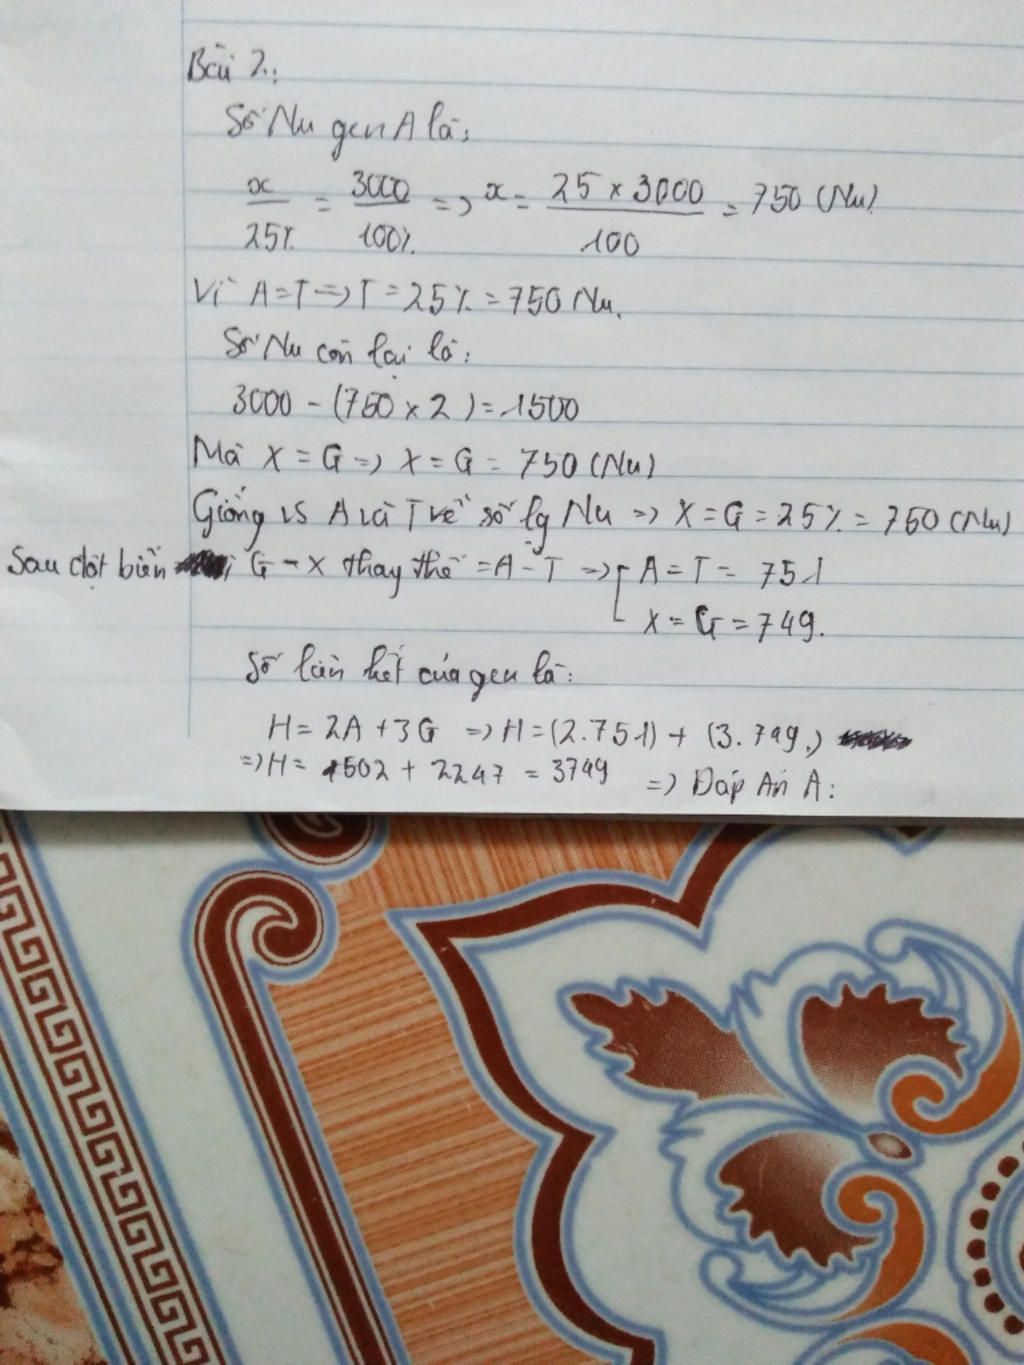 Bài 2:
Số Nu gen A là:
x/25% = 3000/100% => x = 25 x 3000/100 = 750 (Nu)
Vì A=T => T = 25% = 750 Nu.
Số Nu còn lại là:
3000 - (750 x 2) = 1500
Mà X = G => X = G = 750 (Nu)
Giống vs A và T về số lg Nu => X = G = 25% = 750 (Nu)
Sau đột biến G - X thay thế = A - T => [ A = T = 751
X = G = 749.
Số liên kết của gen là:
H = 2A + 3G => H = (2.751) + (3.749.)
=> H = 1502 + 2247 = 3749 => Đáp Án A: